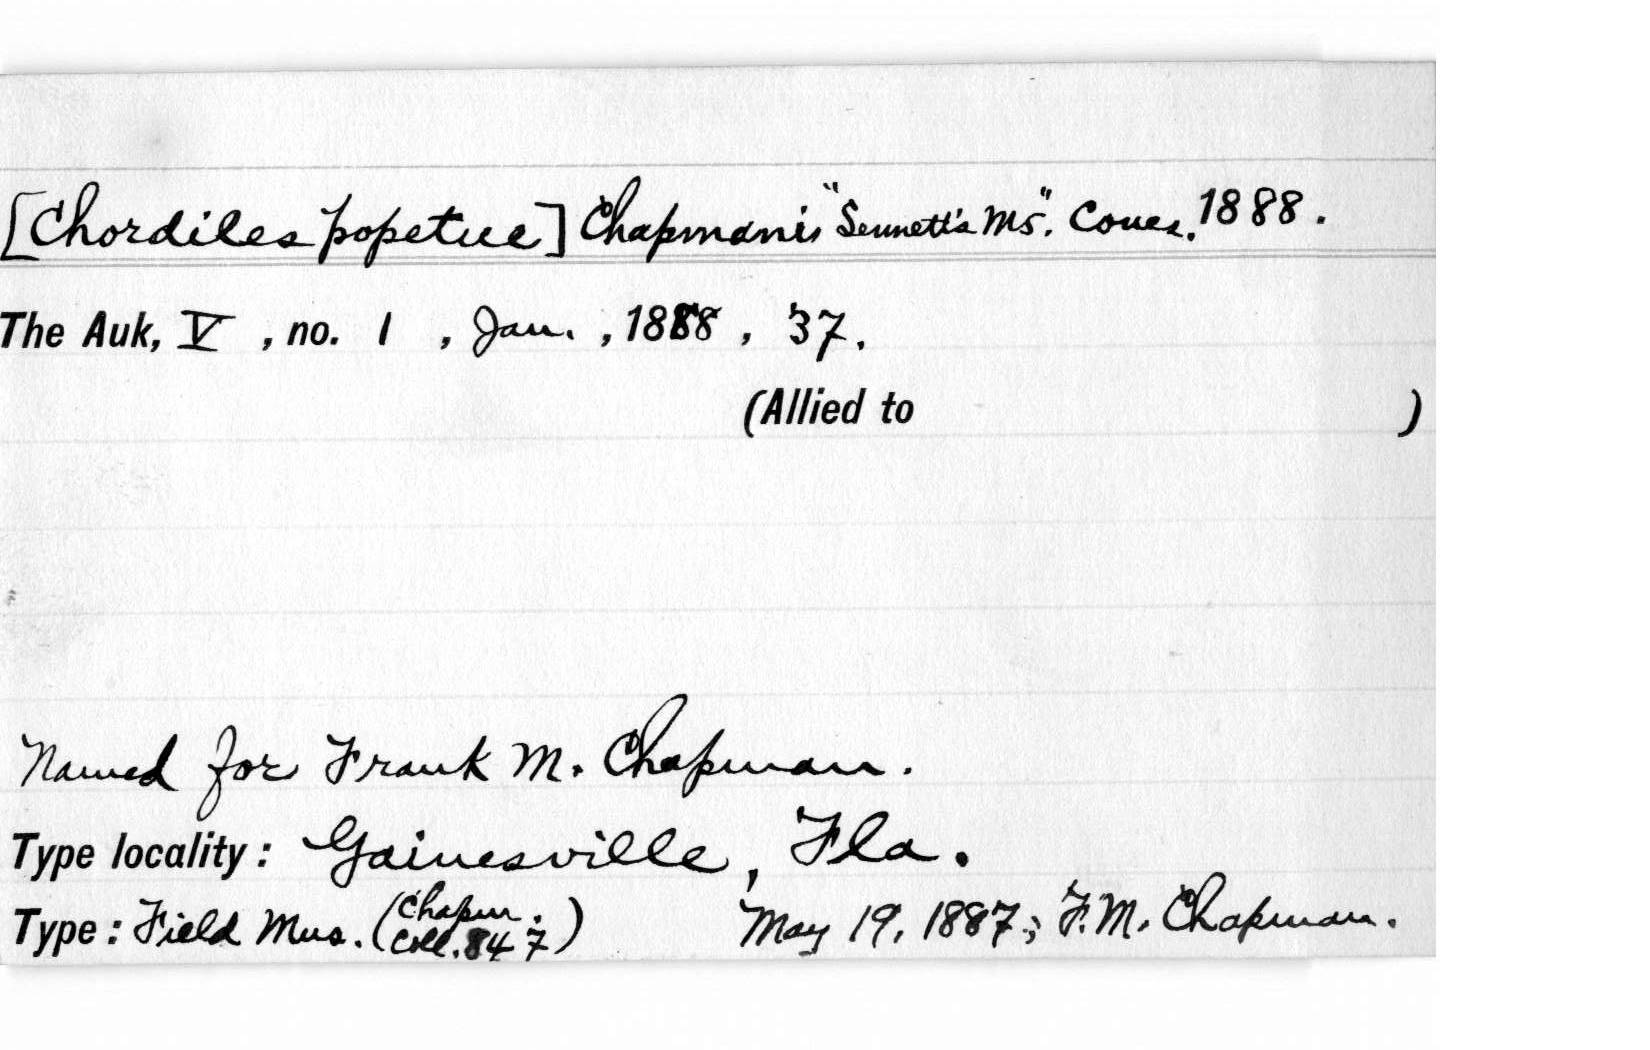 [Chordiles popetue] Chapmani "Sennett's Ms". Coues. 1888.
The Auk, V , no. 1 , Jan. , 1888 , 37.
(Allied to )
Named for Frank M. Chapman.
Type locality: Gainesville, Fla.
Type: Field Mus. (Chapm. Coll. 847) May 19, 1887; F. M. Chapman.